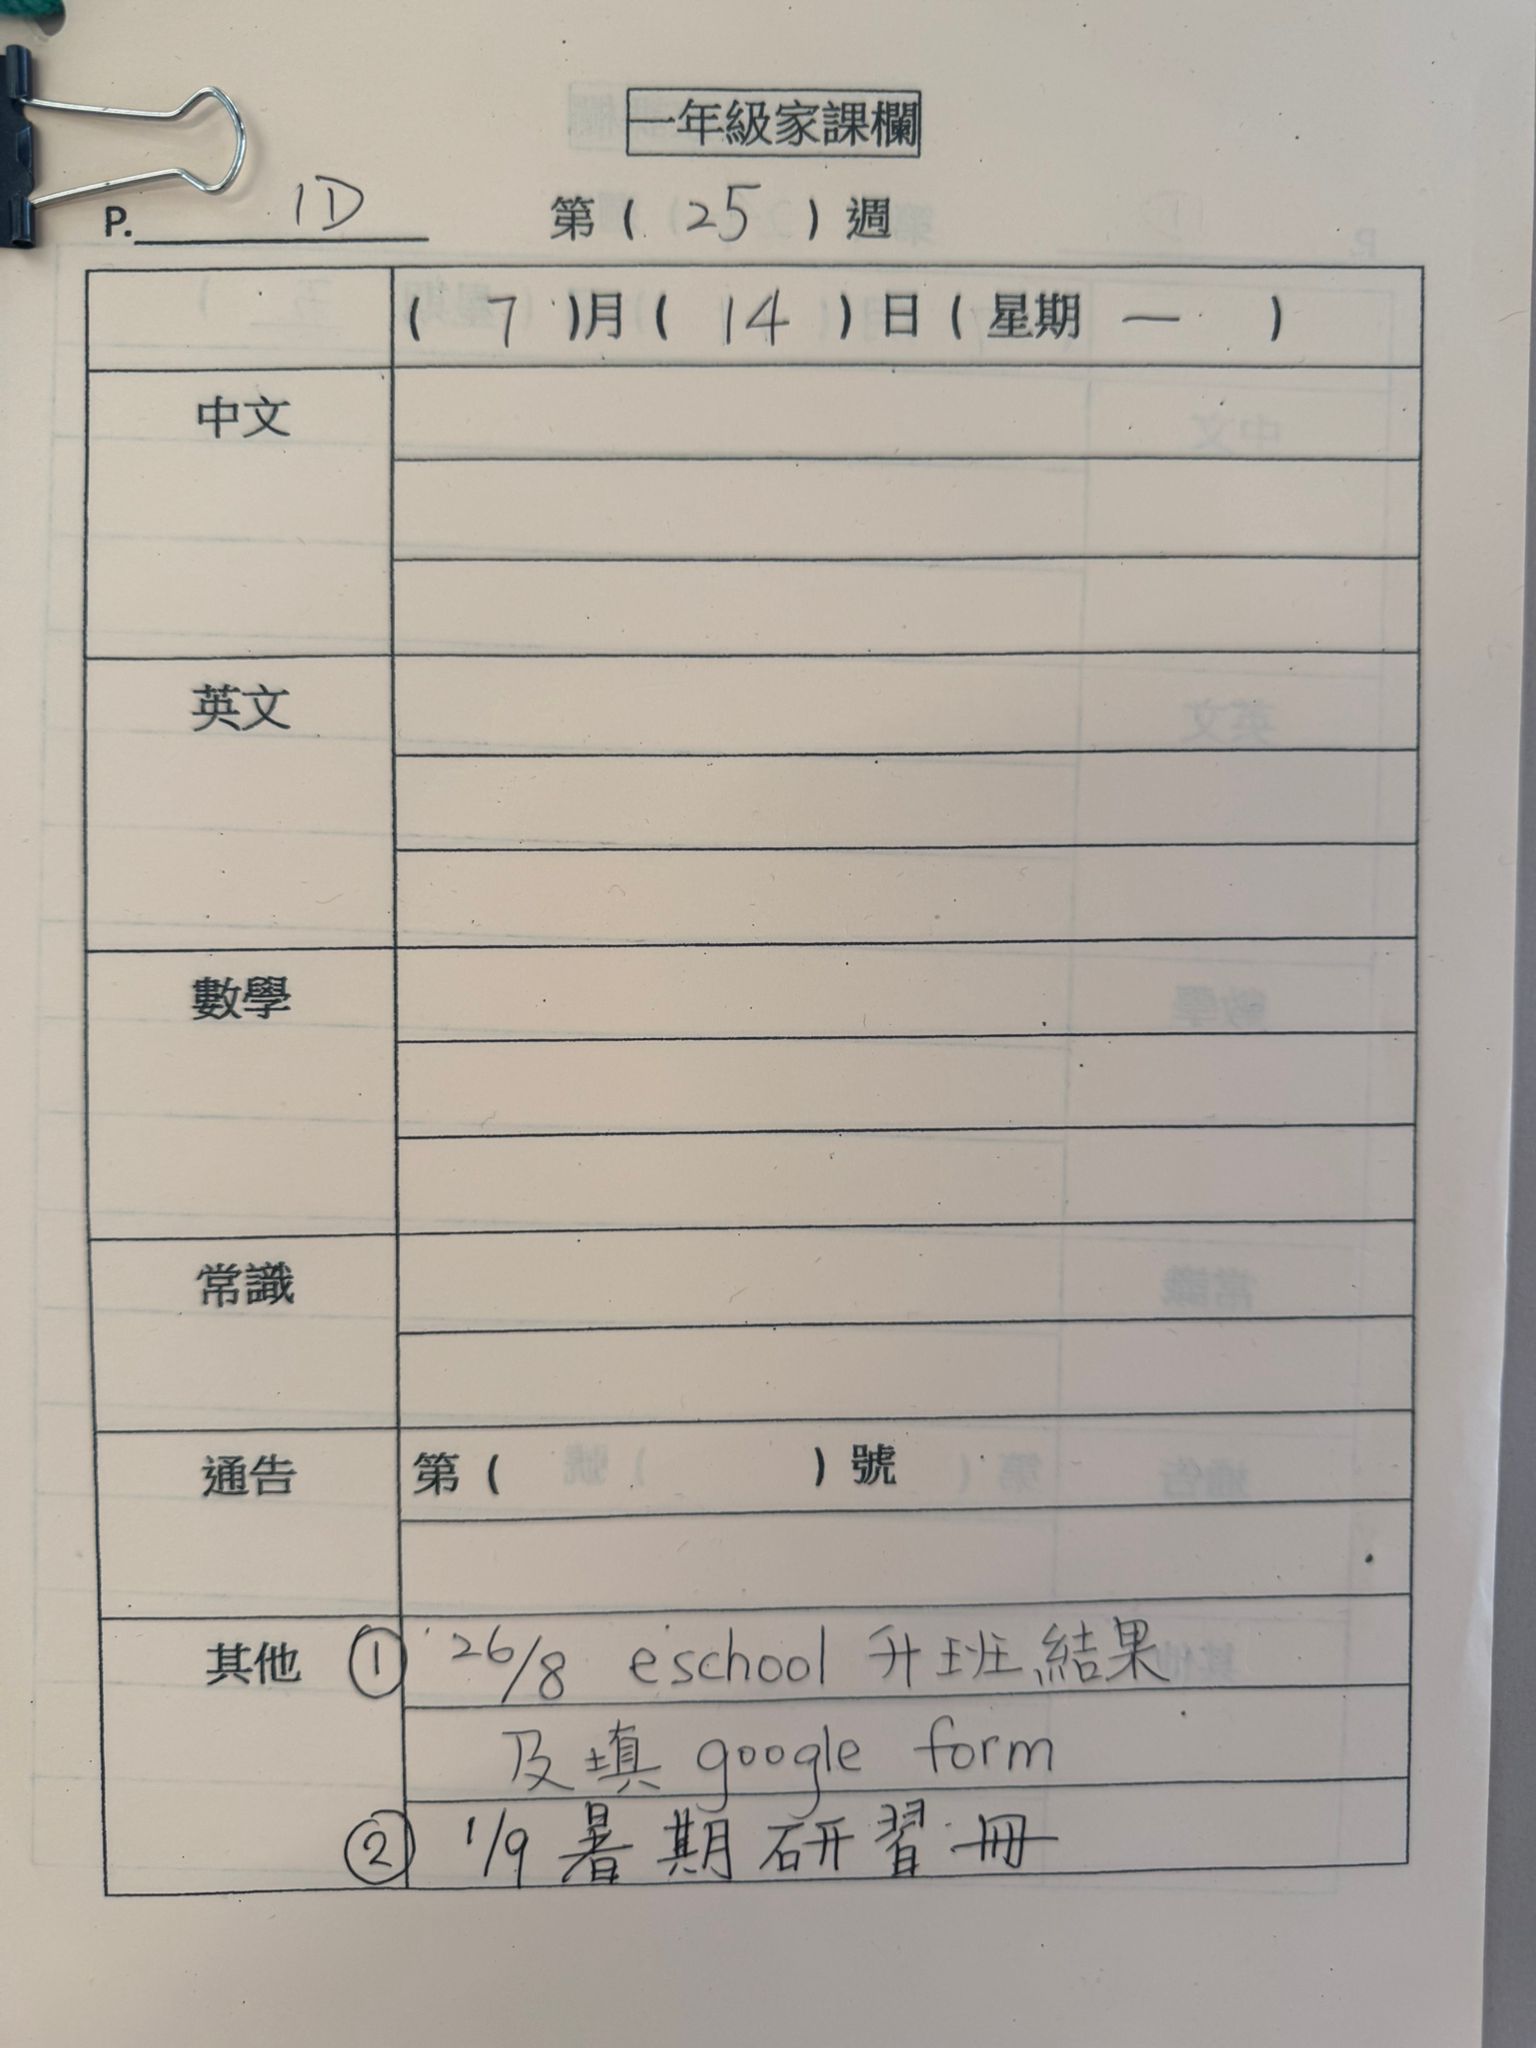 一年級家課欄
P. 1D 第 ( 25 ) 週
( 7 )月 ( 14 ) 日 ( 星期 一 )
中文
英文
數學
常識
通告 第 ( ) 號
其他 ① 26/8 eschool 升班結果
及填 google form
② 1/9 暑期研習冊